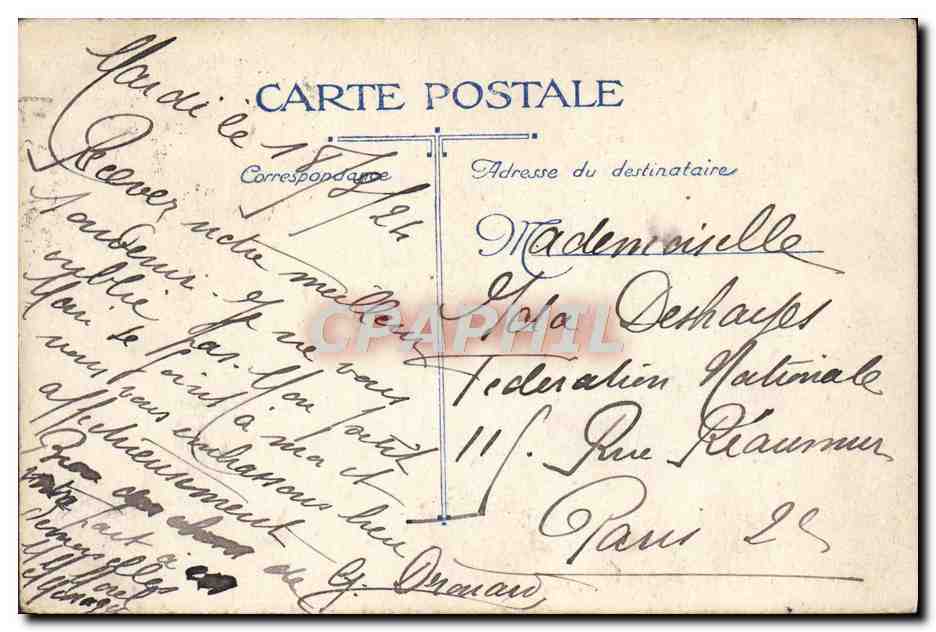 CARTE POSTALE
Correspondance
Adresse du destinataire
Mardi le 18/8/24
Recevez notre meilleur
souvenir. Je ne vous
oublie pas. Mon petit
Mari se joint à moi et
nous vous embrassons bien
affectueusement
de G. Drouard
votre part à
Mademoiselle
Deshayes
Federation Nationale
115. Rue Réaumur
Paris 2e
CPAPHIL